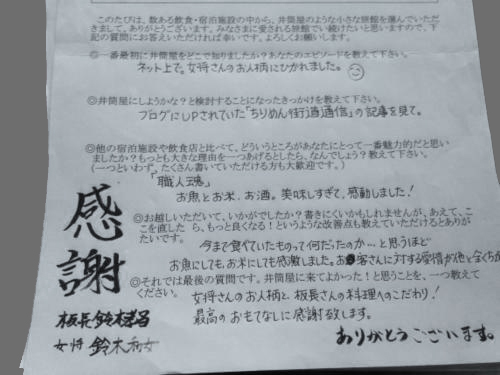 このたびは、数ある飲食・宿泊施設の中から、井筒屋のような小さな旅館を選んでいただ
きまして、ありがとうございます。みなさまに愛される旅館で続けたいと思いますので、下
記の質問にお答えいただければ幸いです。よろしくお願いします。
◎一番最初に井筒屋をどこで知りましたか?あなたのエピソードを教えて下さい。
ネット上で。女将さんのお人柄にひかれました。
◎井筒屋にしようかな?と検討することになったきっかけを教えて下さい。
ブログにUPされていた「ちりめん街道通信」の記事を見て。
◎他の宿泊施設や飲食店と比べて、どういうところがあなたにとって一番魅力的だと思い
ましたか?もっとも大きな理由を一つあげるとしたら、なんでしょう?教えて下さい。
(一つといわず、たくさん書いていただける方も大歓迎です。)
「職人魂」
お魚とお米、お酒。美味しすぎて、感動しました!
◎お越しいただいて、いかがでしたか?書きにくいかもしれませんが、あえて、こ
こを直した ら、もっと良くなる!というような改善点も教えていただけるとありが
たいです。
今まで食べていたものって何だったのか…と思うほど
お魚にしても、お米にしても感激しました。お客さんに対する愛情が他と全くちが
◎それでは最後の質問です。井筒屋に来てよかった!と思うことを、一つ教えて
ください。
女将さんのお人柄と、板長さんの料理へのこだわり!
最高のおもてなしに感謝致します。
感謝
板長 鈴木
女将 鈴木
ありがとうございます。